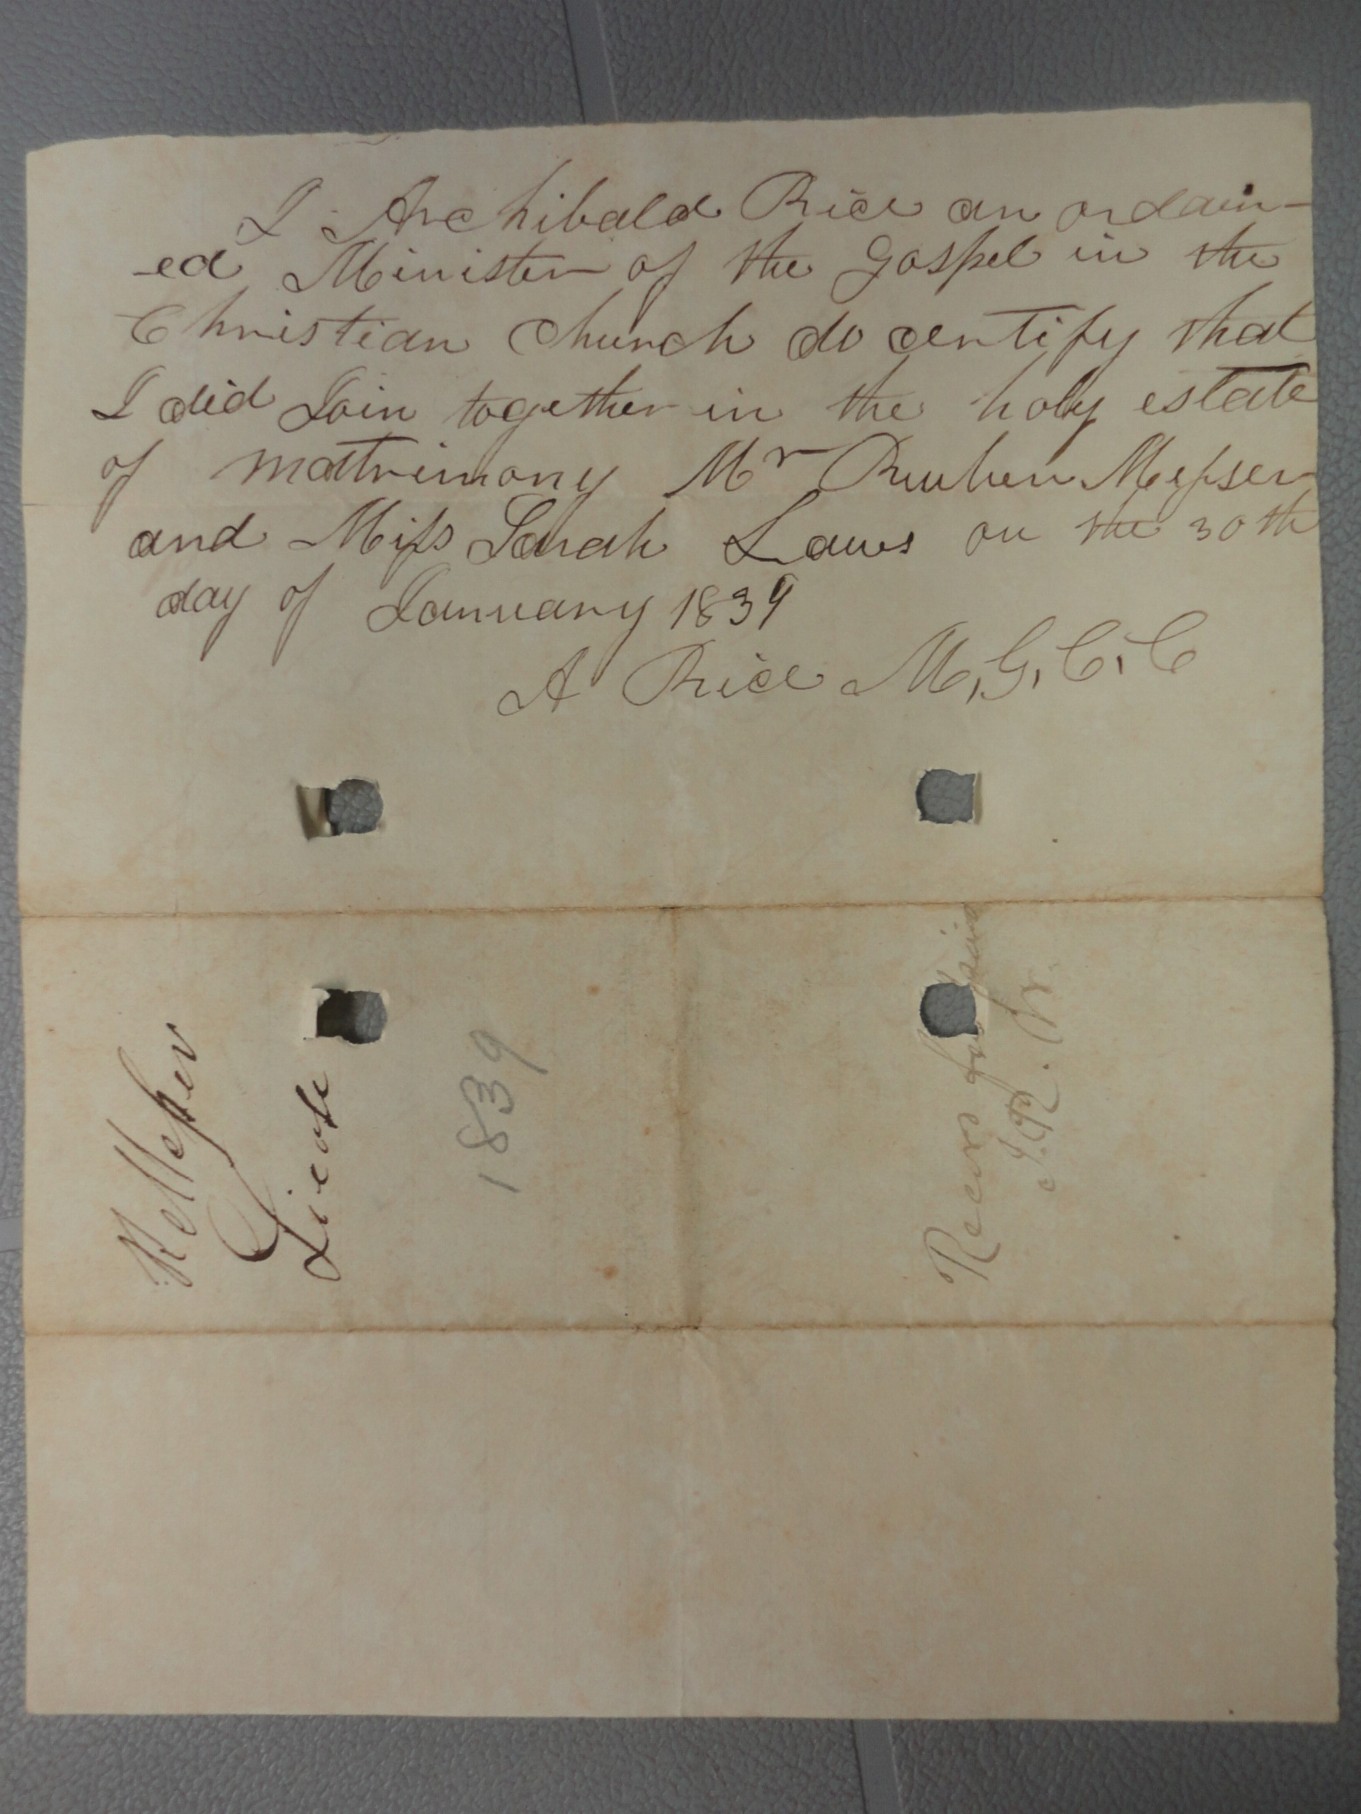 I Archibald Rice an ordain-
-ed Minister of the gospel in the
Christian church do certify that
I did Join together in the holy estate
of matrimony Mr Reuben Messer
and Miss Sarah Laws on the 30th
day of January 1839
A Rice M.G.C.C
R Messer
1839